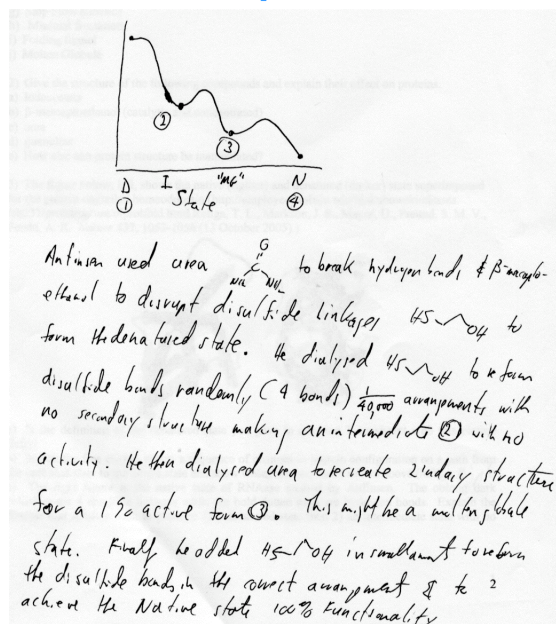 ②
③
D I "MG" N
① State ④
O
Anfinsen used urea C to break hydrogen bonds & β-mercapto-
NH₂ NH₂
ethanol to disrupt disulfide linkages HS OH to
form the denatured state. He dialysed HS OH to reform
disulfide bonds randomly (4 bonds) 1/40,000 arrangements with
no secondary structure making an intermediate ② with no
activity. He then dialysed urea to recreate 2ndary structure
for a 1% active form ③. This might be a molten globule
state. Finally he added HS OH in small amount to reform
the disulfide bonds in the correct arrangement & to
achieve the Native state 100% Functionality